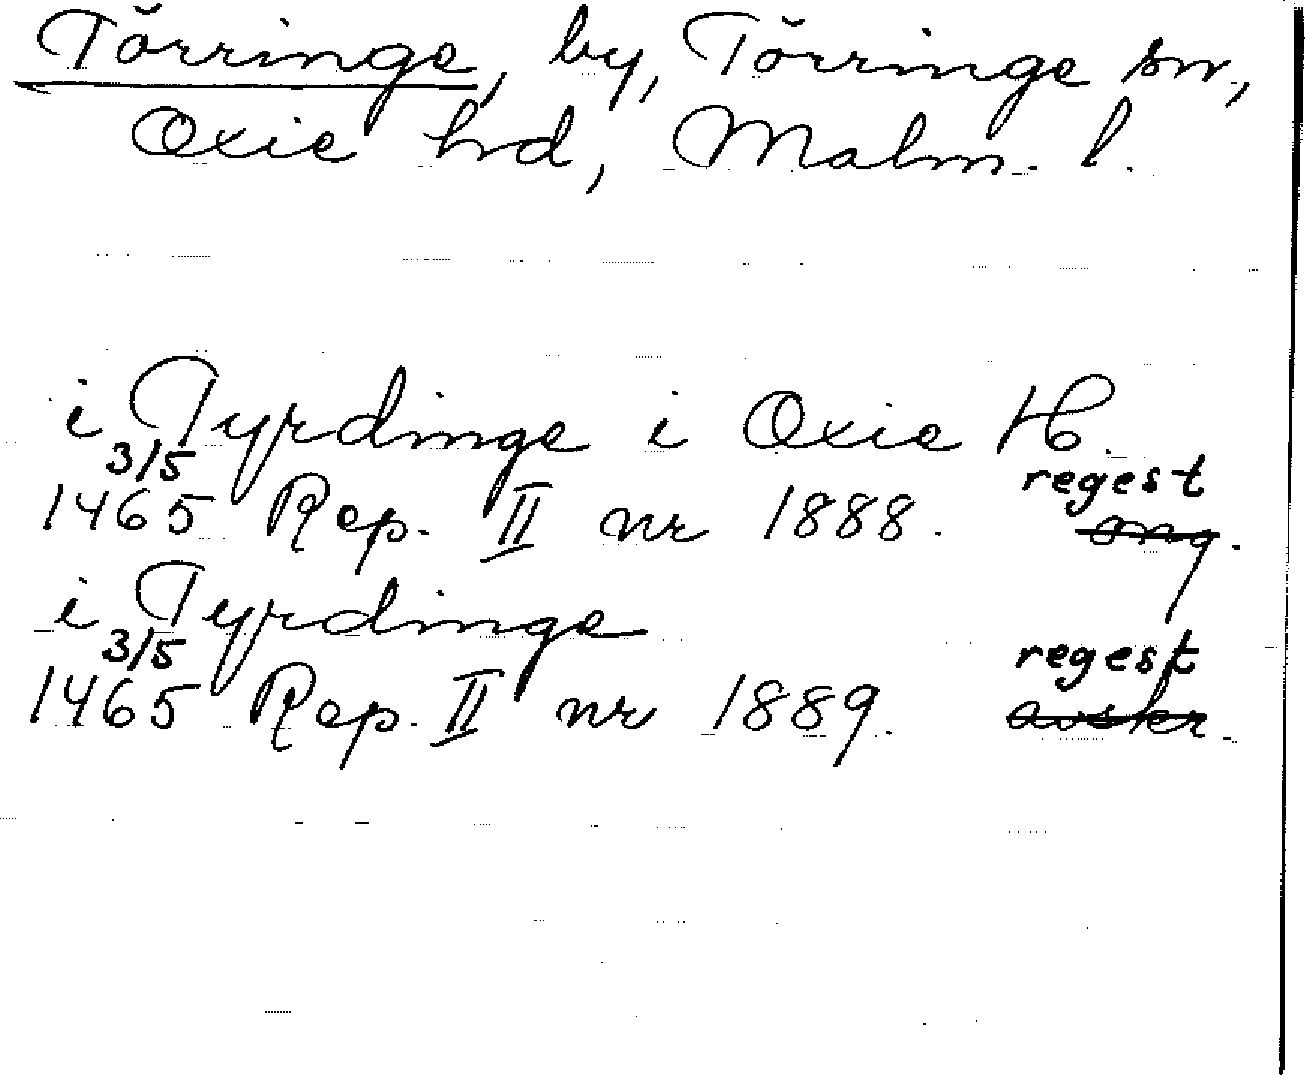 Törringe, by, Törringe sn,
Oxie hd, Malm. l.
i Tyrdinge i Oxie H.
3/5 regest
1465 Rep. II nr 1888. orig.
i Tyrdinge
3/5 regest
1465 Rep. II nr 1889. avskr.